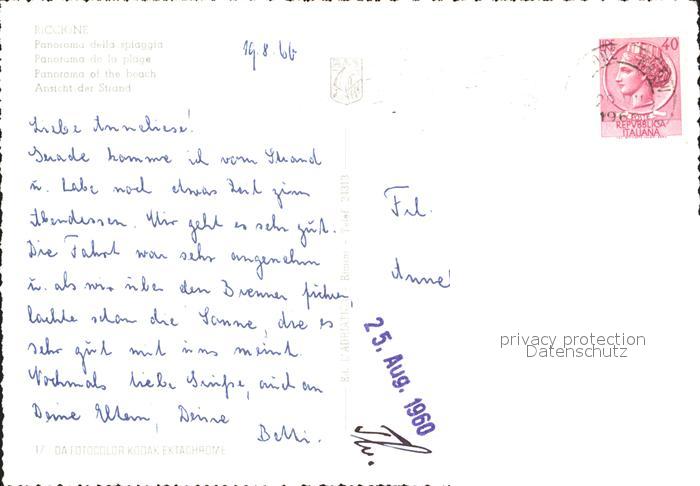 RICCIONE
Panorama della spiaggia
Panorama de la plage
Panorama of the beach
Ansicht der Strand
19.8.66
LIRE 40
POSTE
REPVBBLICA
ITALIANA
Liebe Anneliese!
Gerade komme ich vom Strand
u. habe noch etwas Zeit zum
Abendessen. Mir geht es sehr gut.
Die Fahrt war sehr angenehm
u. als wir über den Brenner fuhren,
lachte schon die Sonne, die es
sehr gut mit uns meint.
Nochmals liebe Grüße, auch an
Deine Eltern, Deine
Betti.
Frl.
Anne
25. Aug. 1960
privacy protection
Datenschutz
17 DA FOTOCOLOR KODAK EKTACHROME